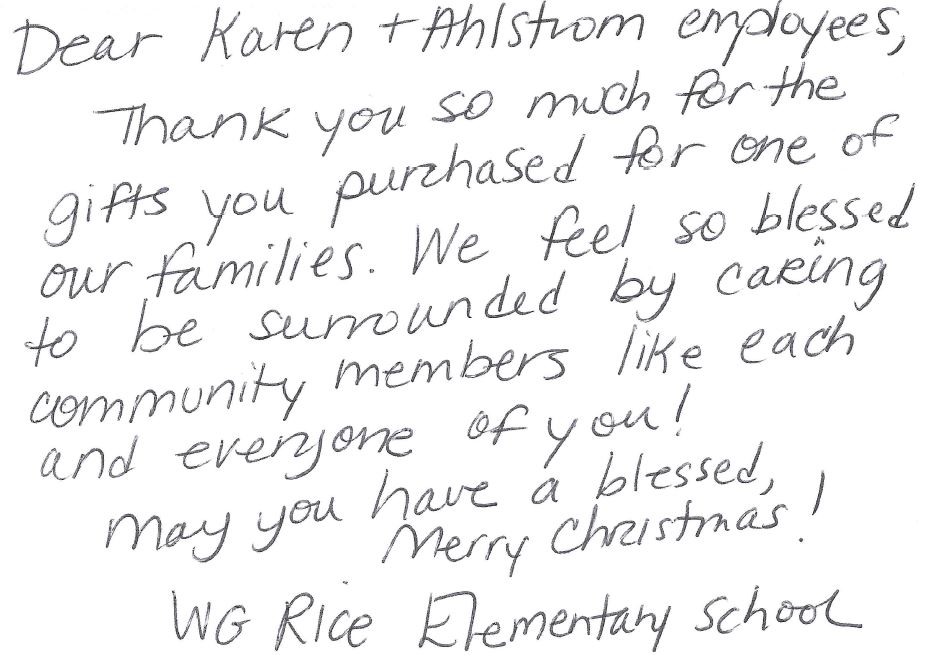 Dear Karen + Ahlstrom employees,
Thank you so much for the
gifts you purchased for one of
our families. We feel so blessed
to be surrounded by caring
community members like each
and everyone of you!
May you have a blessed,
Merry Christmas!
WG Rice Elementary School